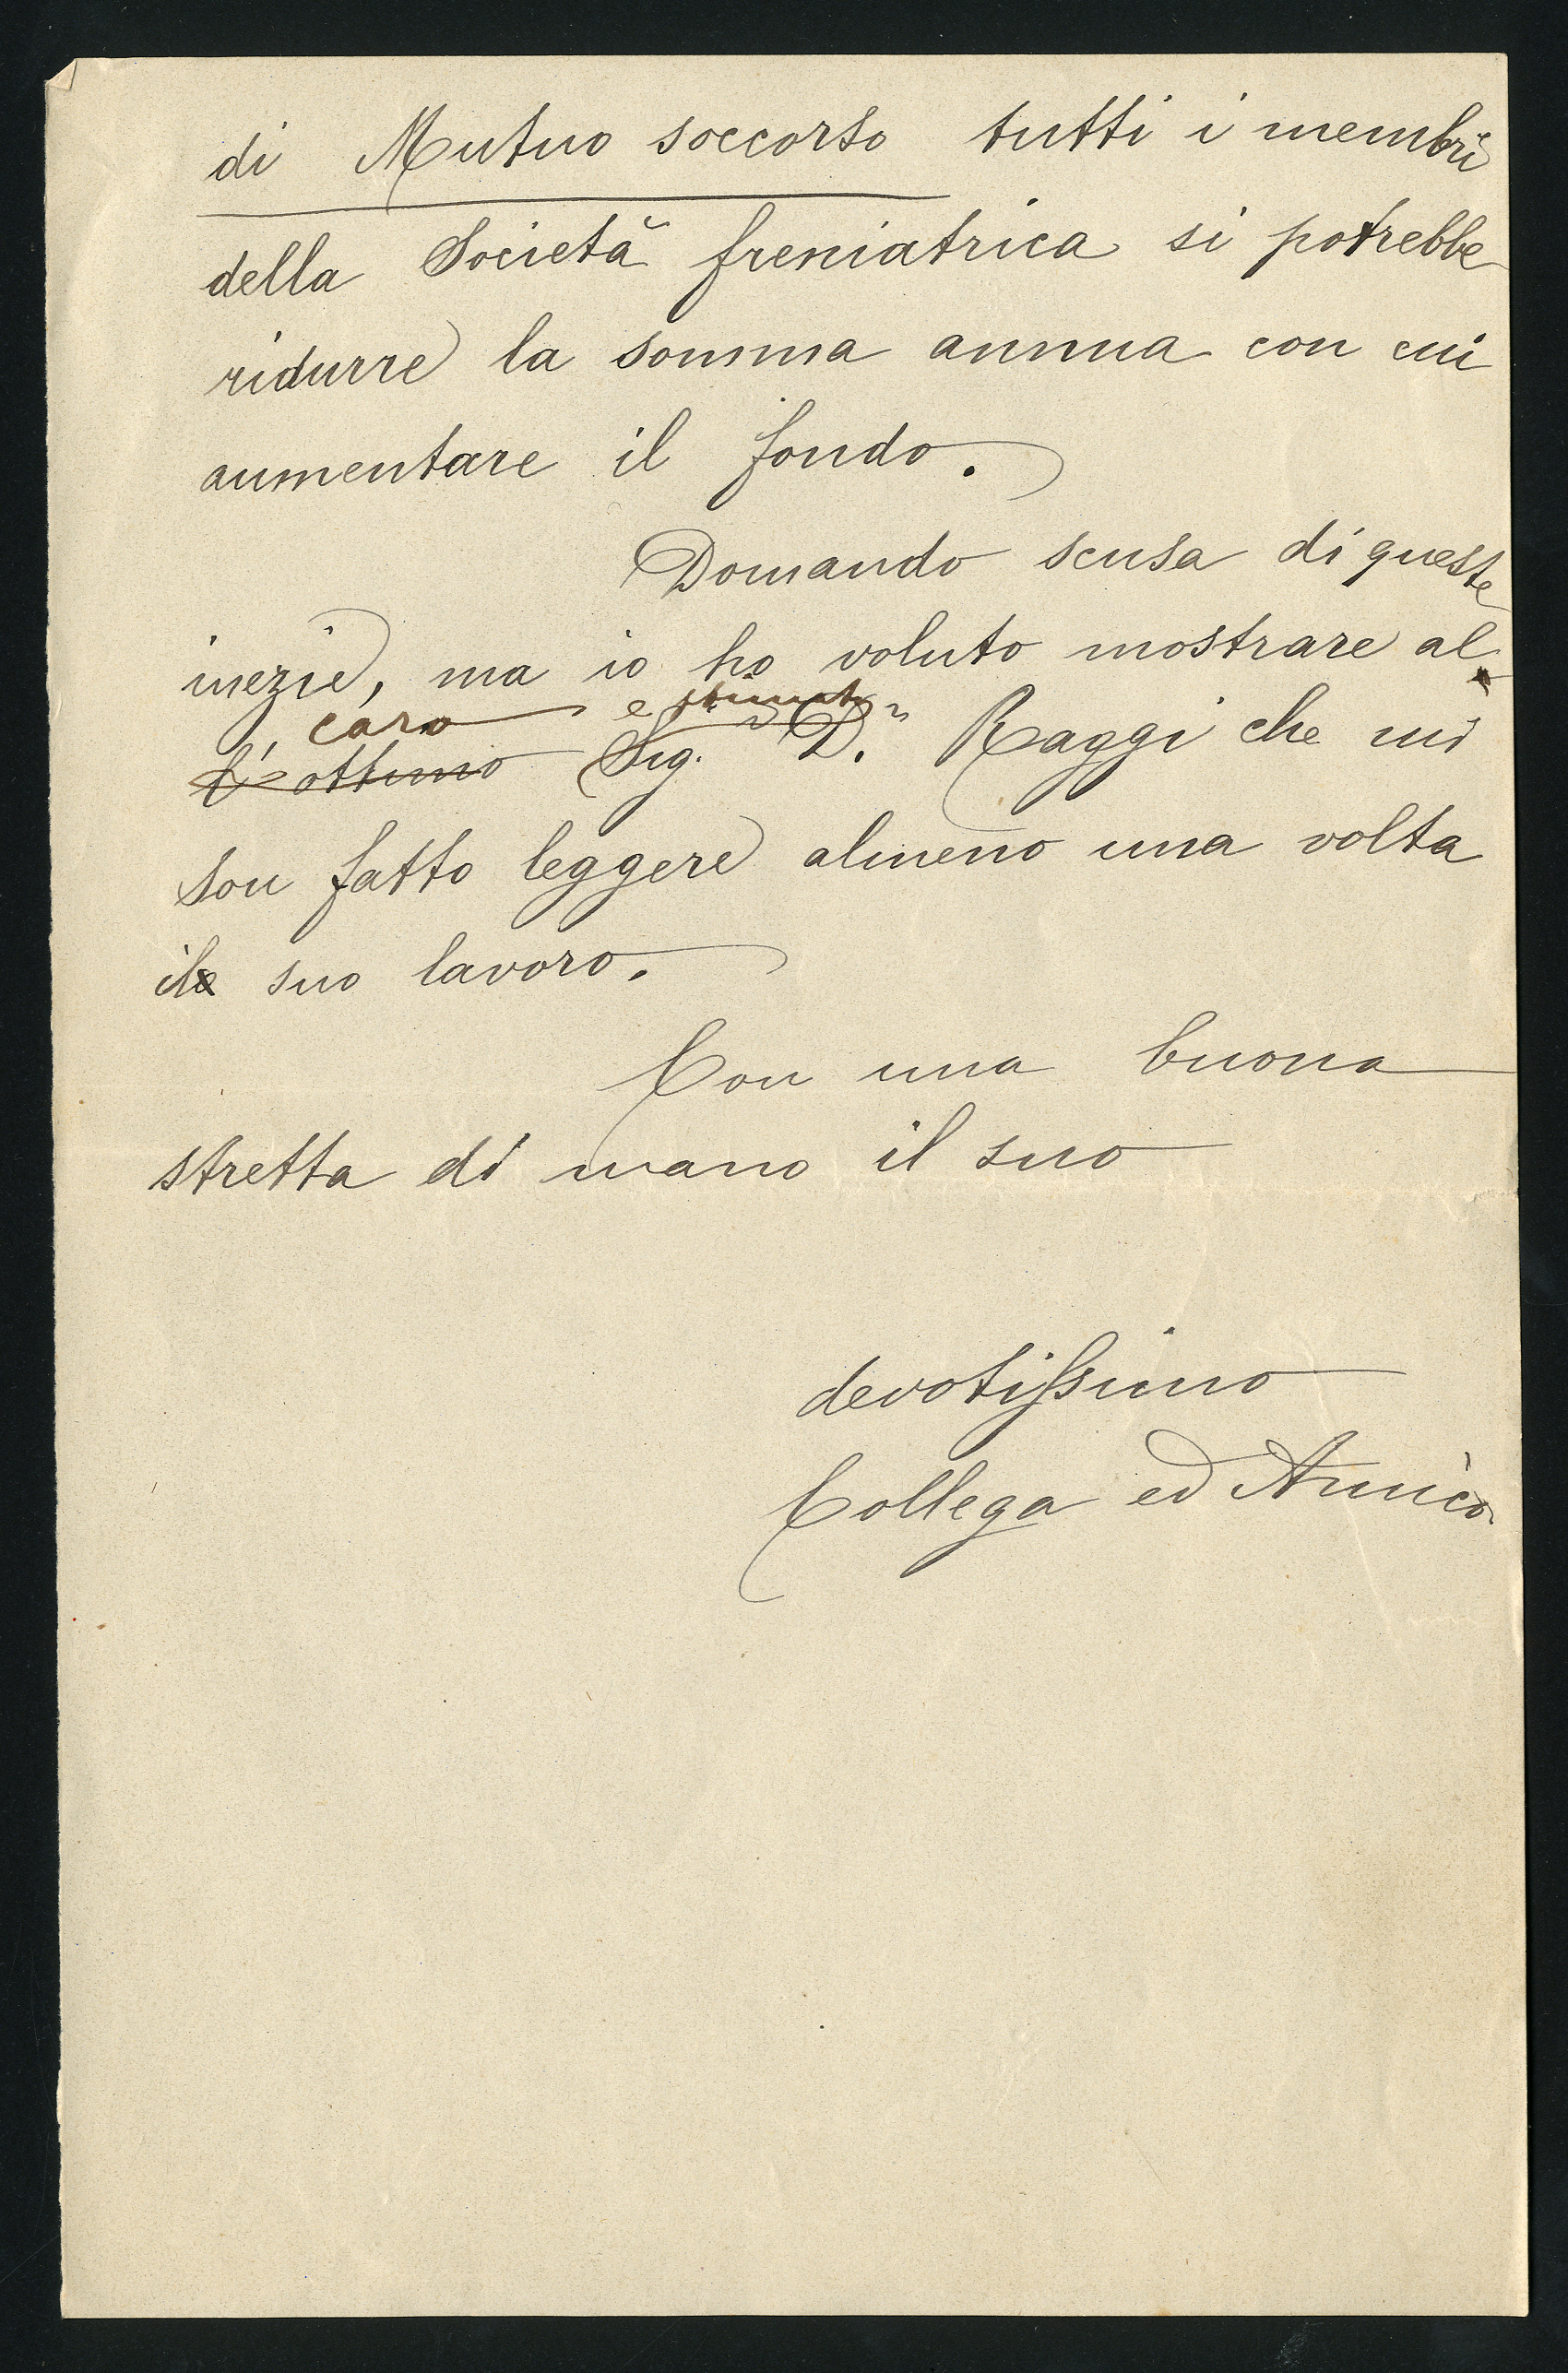 di Mutuo soccorso tutti i membri
della Società freniatrica si potrebbe
ridurre la somma annua con cui
aumentare il fondo.
Domando scusa di queste
inezie, ma io ho voluto mostrare al
caro e stimato
l'ottimo Sig. D.r Raggi che mi
son fatto leggere almeno una volta
il suo lavoro.
Con una buona
stretta di mano il suo
devotissimo
Collega ed Amico